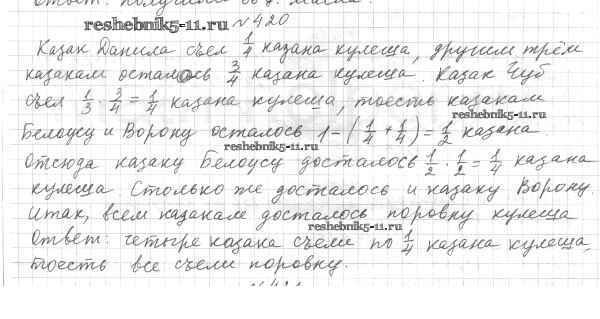 Ответ: получили
reshebnik5-11.ru
№420
Казак Данила съел 1/4 казана кулеша, другим трём
казакам осталось 3/4 казана кулеша. Казак Чуб
съел 1/3 · 3/4 = 1/4 казана кулеша, тоесть казакам
reshebnik5-11.ru
Белоусу и Ворону осталось 1-(1/4+1/4)=1/2 казана.
reshebnik5-11.ru
Отсюда казаку Белоусу досталось 1/2 · 1/2 = 1/4 казана
кулеша. Столько же досталось и казаку Ворону.
Итак, всем казакам досталось поровну кулеша
reshebnik5-11.ru
Ответ: четыре казака съели по 1/4 казана кулеша,
тоесть все съели поровну.